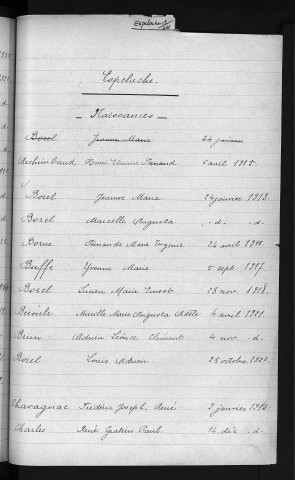 Espeluche
Espeluche.
Naissances
Borel Jeanne Marie 24 janvier
Archimbaud Henri Etienne Fernand 5 avril 1915.
Borel Jeanne Marie 24 janvier 1913.
Borel Marcelle Augusta d. d.
Borne Fernande Marie Eugénie 24 avril 1915.
Buffe Yvonne Marie 5 sept. 1917.
Borel Lucien Marie Ernest 28 nov. 1918.
Mireille Marie Augusta Adèle 4 avril 1921.
Brun Adrien Léonce Clément 4 nov. d.
Borel Louis Adrien 25 octobre 1920.
Chavagnac Frédéric Joseph René 2 janvier
Charles René Gratien Paul 14 déc. d.